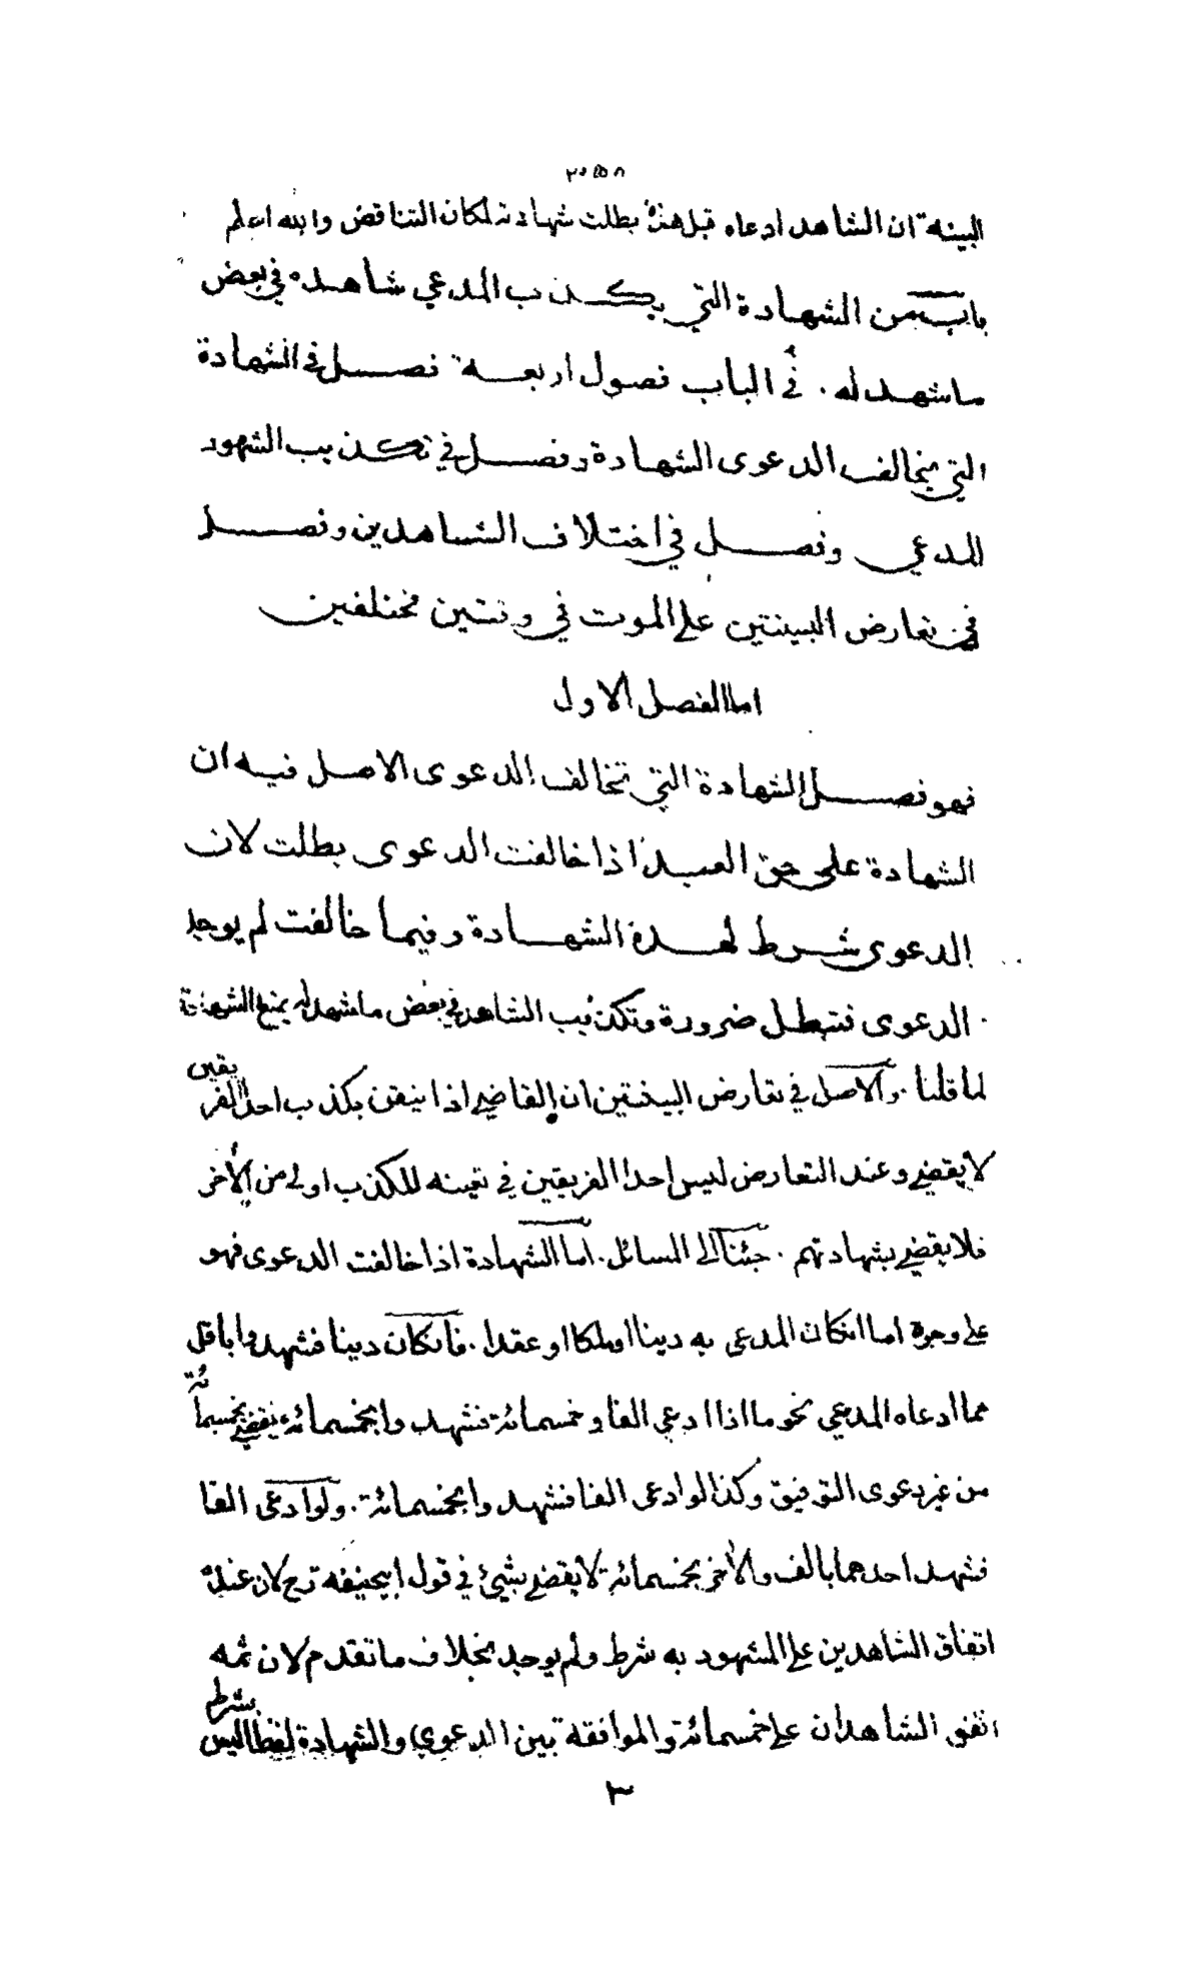 البينة ان الشاهد ادعاه قبل هذا بطلت شهادته لمكان التناقض والله اعلم
باب من الشهادة التي يكذب المدعي شاهده في بعض
ما شهد له . في الباب فصول اربعة فصل في الشهادة
التي يخالف الدعوى الشهادة وفصل في تكذيب الشهود
للمدعي وفصل في اختلاف الشاهدين وفصل
في تعارض البينتين على الموت في وقتين مختلفين
اما الفصل الاول
فهو فصل الشهادة التي تخالف الدعوى الاصل فيه ان
الشهادة على حق العبد اذا خالفت الدعوى بطلت لان
الدعوى شرط لهذه الشهادة وفيما خالفت لم يوجد
الدعوى فتبطل ضرورة وتكذيب الشاهد في بعض ما شهد له يمنع الشهادة
لما قلنا . والاصل في تعارض البينتين ان القاضي اذا تيقن بكذب احد الفريقين
لا يقضي وعند التعارض ليس احد الفريقين في تعيينه للكذب اولى من الأخر
فلا يقضي بشهادتهم . جئنا الى المسائل . اما الشهادة اذا خالفت الدعوى فهو
على وجوه اما انكان المدعى به دينا او ملكا او عقدا . فانكان دينا فشهدوا باقل
مما ادعاه المدعي نحو ما اذا ادعى الفا وخمسمائة فشهدوا بخمسمائة يقضي بخمسمائة
من غير دعوى التوفيق وكذا لو ادعى الفا فشهدوا بخمسمائة . ولو ادعى الفا
فشهد احدهما بالف والأخر بخمسمائة لا يقضى بشيئ في قول ابيحنيفه رح لان عنده
اتفاق الشاهدين على المشهود به شرط ولم يوجد بخلاف ما تقدم لان ثمه
اتفق الشاهدان على خمسمائة والموافقة بين الدعوى والشهادة لفظا ليس بشرط
٣